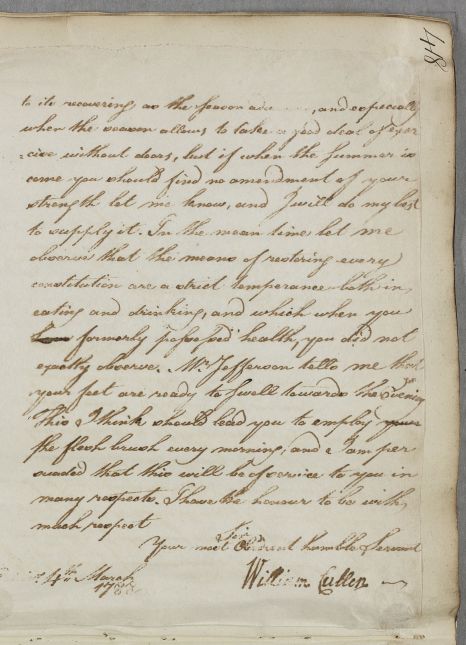 847
to its recovering as the season adv...., and especially
when the season allows to take a good deal of exer
=cise without doors, but if when the Summer is
come you should find no amendment of your
strength let me know, and I will do my best
to supply it. In the mean time let me
observe that the means of restoring every
constitution are a strict temperance both in
eating and drinking, and which when you
formerly possessed health, you did not
exactly observe. Mr. Jefferson tells me that
your feet are ready to swell towards the Evening
This I think should lead you to employ
the flesh brush every morning, and I am per
suaded that this will be of service to you in
many respects. I have the honour to be with
much respect
Sir
Your most Obedient humble Servant
4th March
William Cullen